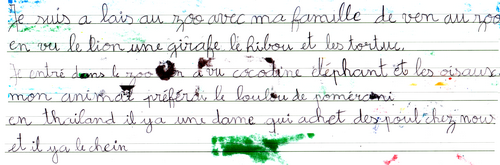 Je suis a lais au zoo avec ma famille de ven au zoo
en vu le lion une girafe le hibou et les tortue.
Je entré dans le zoo on a vu crocrine éléphant et les oisaux
mon animal préféré le loulou de pomérani
en thailand il ya une dame qui achet des poul chez nour
et il ya le chein